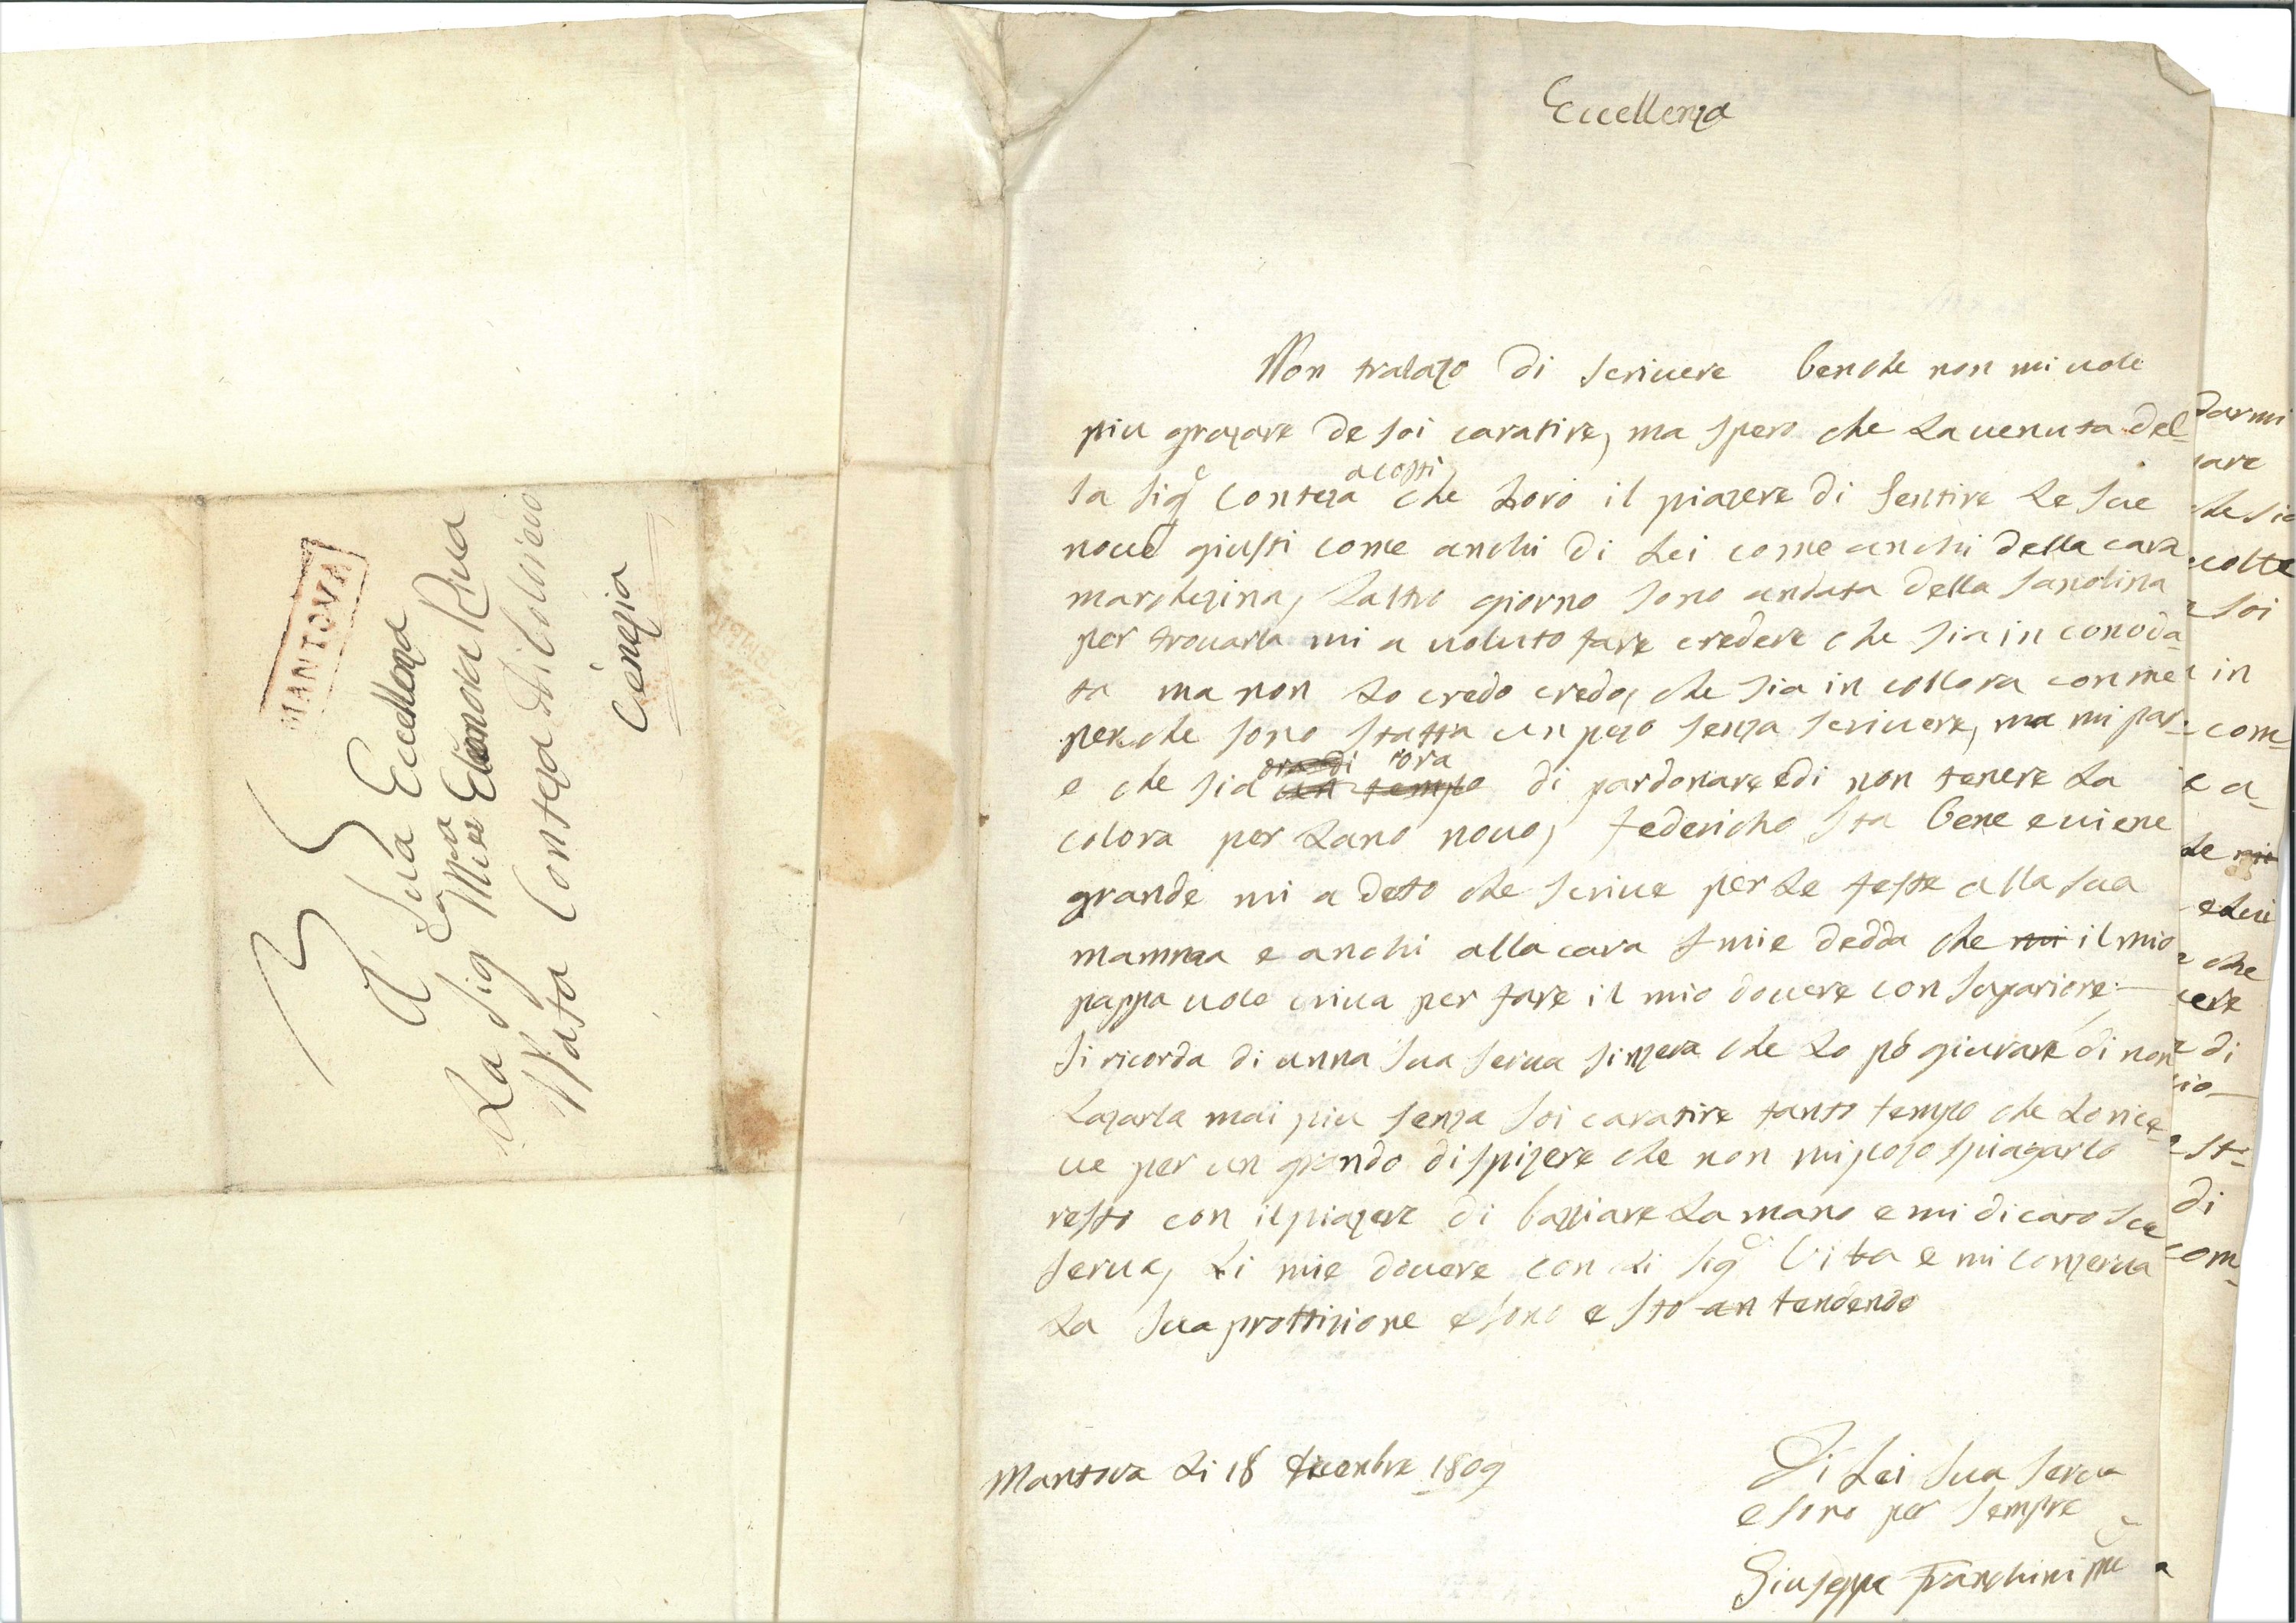 MANTOVA
A Sua Eccellenza
La Sig Eleonora Riva
Nata Conteza di Coloredo
Cenezia
Eccellenza
Non tralazo di scrivere benche non mi vole
piu grazare de soi caratire, ma spero che La venuta del-
la Sig Conteza acosti che horò il piazere di sentire Le sue
nove giusti come anchi di Lei come anchi della cara
marchezina, Laltro giorno sono andata della Sanolina
per trovarla mi a voluto fare credere che sia in conoda-
ta ma non Lo credo credo, che sia in collora con me
perche sono statta un pezo senza scrivere, ma mi par-
e che sia ora di pardonare e di non tenere La
colora per Lano novo, federicho sta bene e viene
grande mi a deto che scrive per Le feste alla sua
mamma e anchi alla cara mie dedda che il mio
pappa vole criva per fare il mio dovere con Supariore
Si ricorda di unna sua serva sinzera che Lo pò giurare di non
Lazarla mai piu senza soi caratire tanto tempo che Lo rice-
ve per un grando dispizere che non mi pozo spiagarlo
resto con il piazere di bazziare La mano e mi dicaro sua
serva, Li mie dovere con Li Sig Vita e mi conzerva
La sua prottizione e sono e sto an tendendo
Mantova Li 18 dicenbre 1809
Di Lei sua serva
e sono per sempre
Giuseppa Franchini
darmi
iare
che sia
colte
soi
in
com-
e a-
che
e Lei
che
cere
di
st-
di
com-